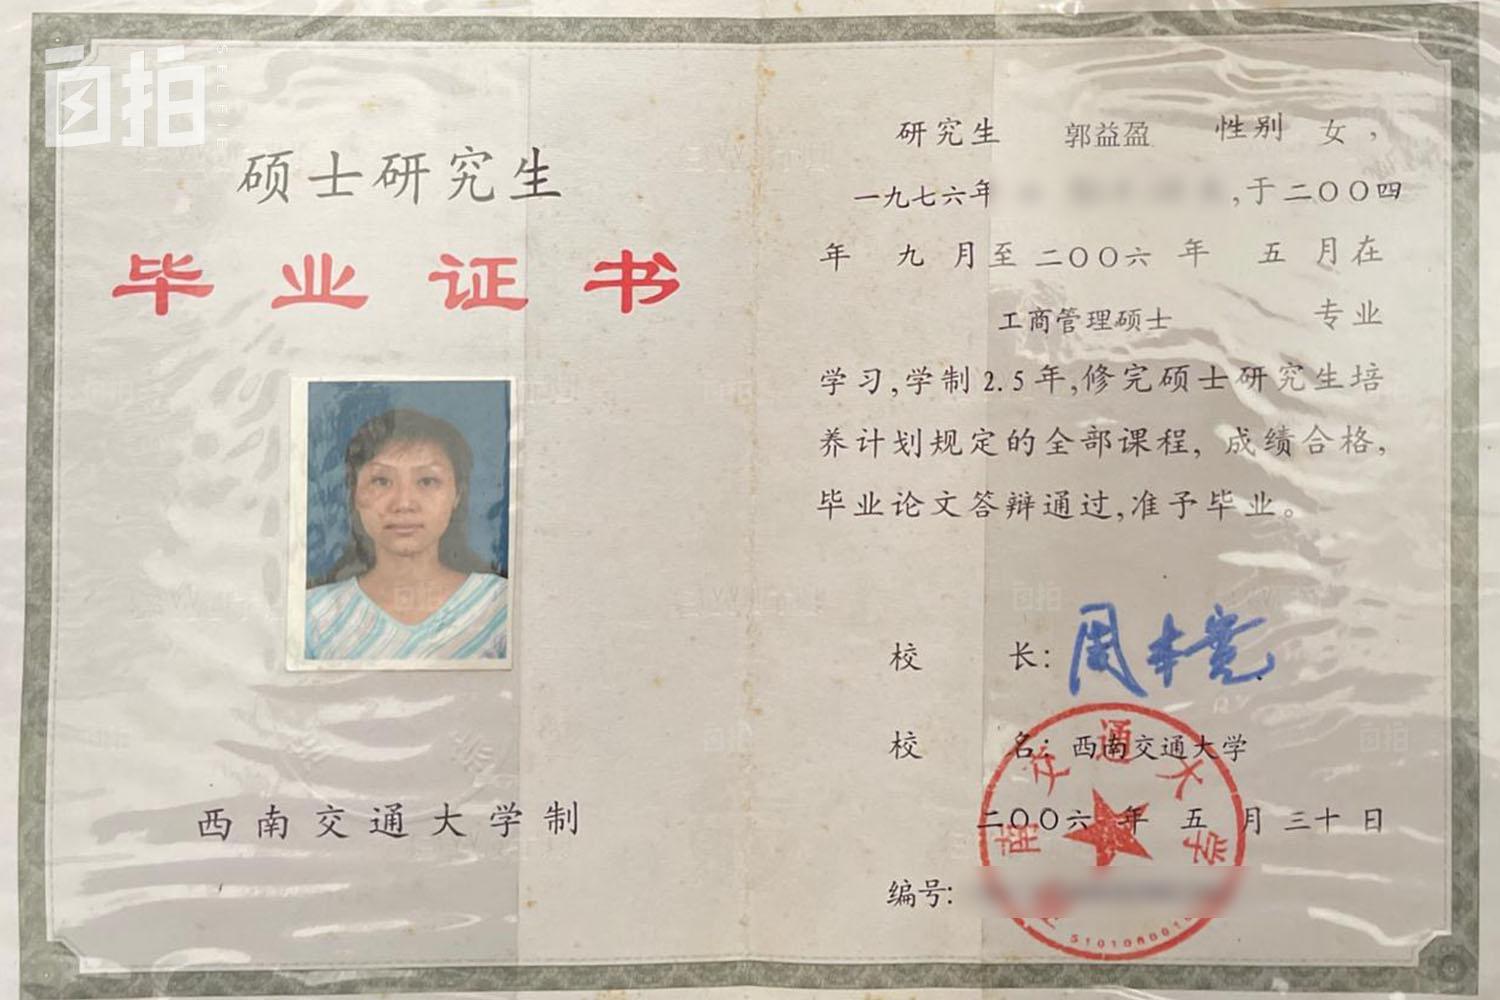 自拍
SELFIE
硕士研究生
毕业证书
西南交通大学制
研究生 郭益盈 性别 女，
一九七六年 ,于二〇〇四
年 九 月至 二〇〇六 年 五 月在
工商管理硕士 专业
学习,学制2.5年,修完硕士研究生培
养计划规定的全部课程, 成绩合格,
毕业论文答辩通过,准予毕业。
校 长: 周本宽
校 名: 西南交通大学
南交通大学
二〇〇六 年 五 月 三十 日
编号: